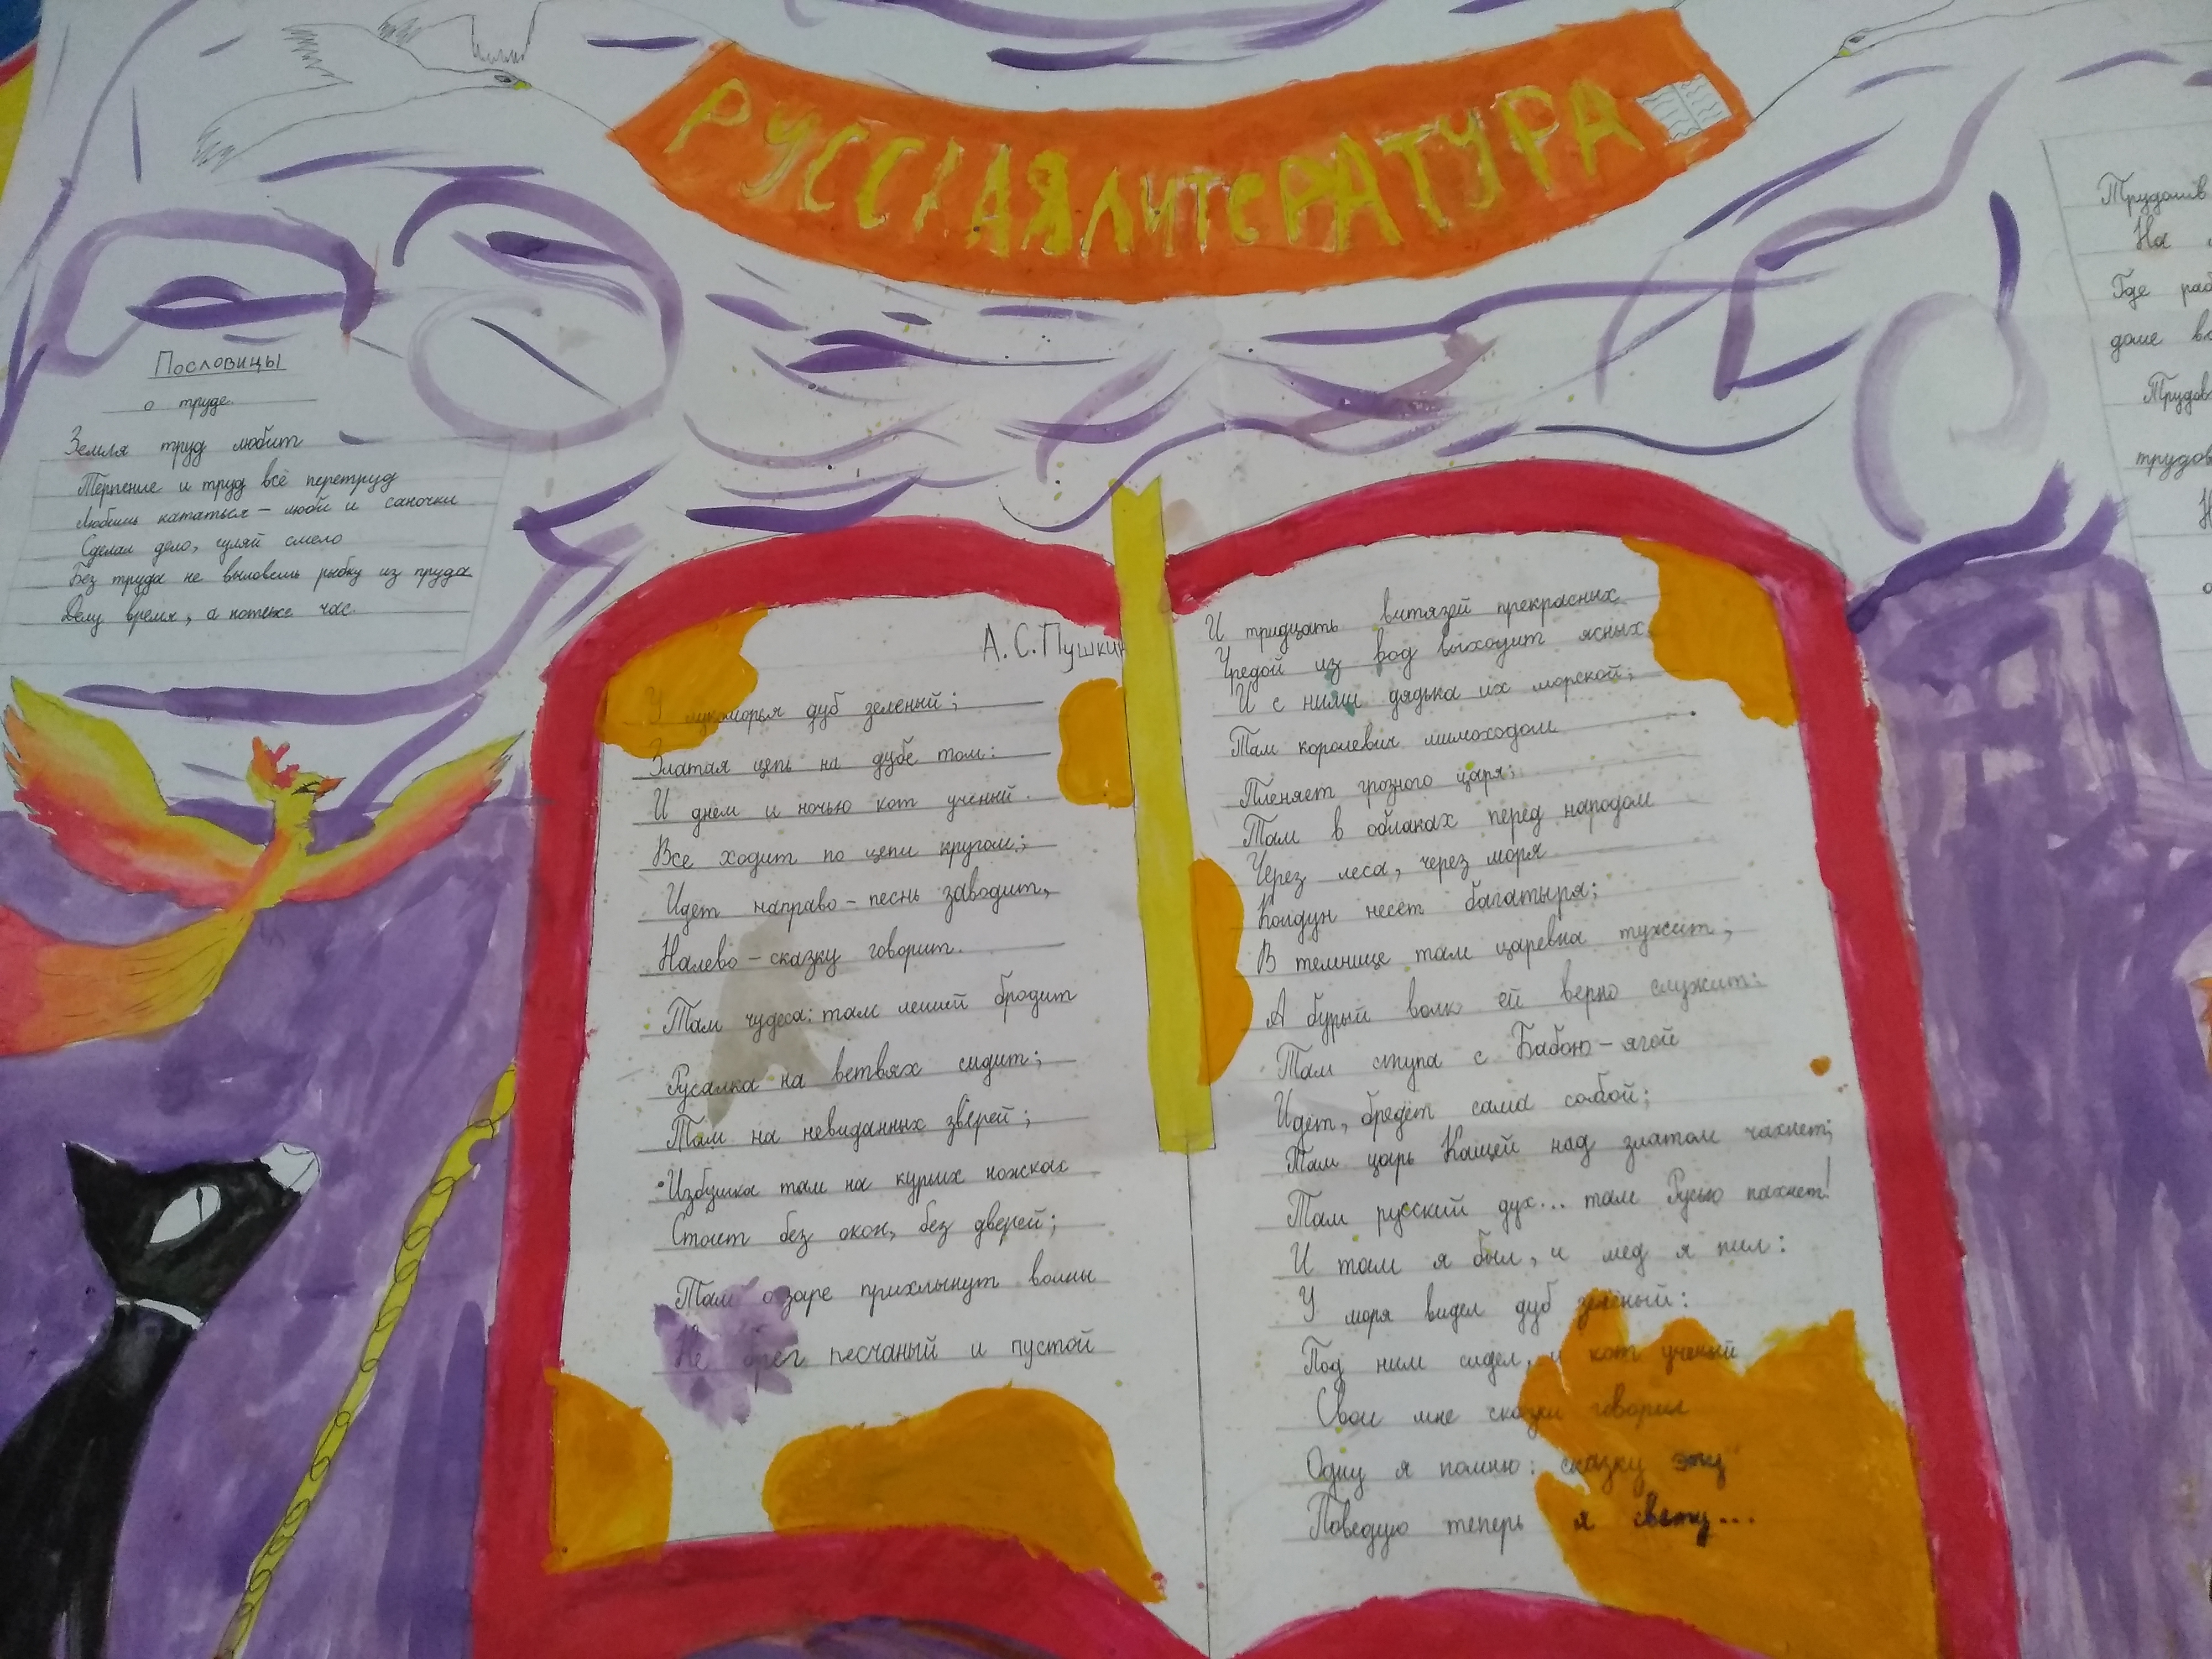 РУССКАЯ ЛИТЕРАТУРА
Пословицы
о труде.
Земля труд любит
Терпение и труд всё перетруд
Любишь кататься – люби и саночки
Сделал дело, гуляй смело
Без труда не выловешь рыбку из пруда
Делу время, а потехе час.
А.С.Пушкин
У лукоморья дуб зеленый;
Златая цепь на дубе том:
И днём и ночью кот учёный
Все ходит по цепи кругом;
Идет направо – песнь заводит,
Налево – сказку говорит.
Там чудеса: там леший бродит
Русалка на ветвях сидит;
Там на невиданных зверей;
Избушка там на курьих ножках
Стоит без окон, без дверей;
Там о заре прихлынут волны
Не брег песчаный и пустой
И тридцать витязей прекрасних
Чредой из вод выходит ясных
И с ними дядька их морской;
Там королевич мимоходом
Пленяет грозного царя;
Там в облаках перед народом
Через леса, через моря
Колдун несёт багатыря;
В темнице там царевна тужит,
А бурый волк ей верно служит:
Там ступа с Бабою–ягой
Идёт, бредёт сама собой;
Там царь Кащей над златом чахнет;
Там русский дух... там Русью пахнет!
И там я был, и мед я пил:
У моря видел дуб зелёный:
Под ним сидел, и кот учёный
Свои мне сказки говорил
Одну я помню: сказку эту
Поведую теперь я свету...
Трудолив
На
Где раб
доме
Трудов
трудов